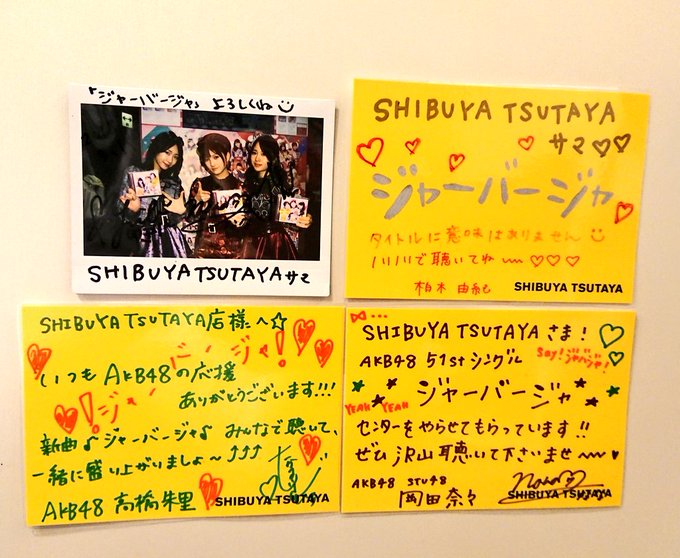 「ジャーバージャ」よろしくね
SHIBUYA TSUTAYAサマ
SHIBUYA TSUTAYA
サマ♡♡
ジャーバージャ
タイトルに意味はありません
ノリノリで聴いてね〜〜♡♡♡
柏木 由紀
SHIBUYA TSUTAYA
SHIBUYA TSUTAYA店様へ☆
ジャーバージャ!
いつもAKB48の応援
ありがとうございます!!!
新曲♪ジャーバージャ♪ みんなで聴いて、
一緒に盛り上がりましょ〜↑↑↑
AKB48 高橋朱里
SHIBUYA TSUTAYA
SHIBUYA TSUTAYA さま!
AKB48 51stシングル
Say!ジャバジャ!
ジャーバージャ
YEAH YEAH
センターをやらせてもらっています!!
ぜひ沢山聴いて下さいませ〜〜♥
AKB48 STU48
岡田奈々
SHIBUYA TSUTAYA